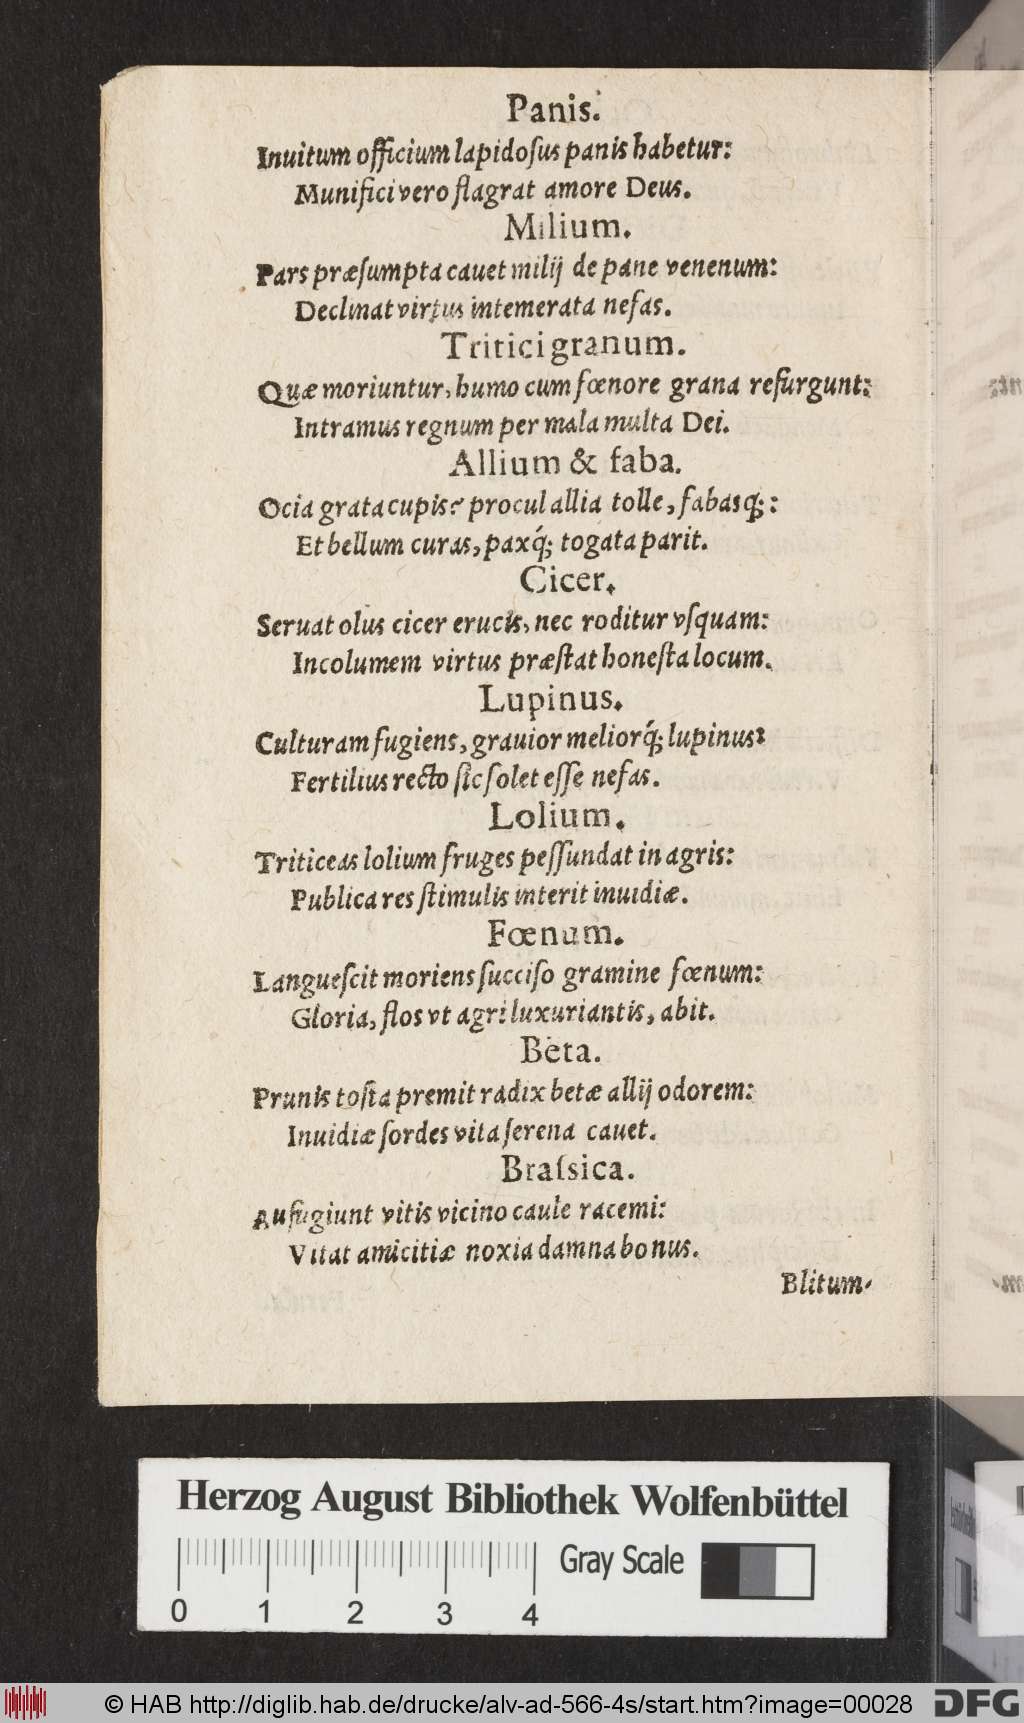 Panis.
Inuitum officium lapidoſus panis habetur:
Munifici vero flagrat amore Deus.
Milium.
Pars præſumpta cauet milij de pane venenum:
Declinat virtus intemerata nefas.
Tritici granum.
Quæ moriuntur, humo cum fœnore grana reſurgunt:
Intramus regnum per mala multa Dei.
Allium & faba.
Ocia grata cupis? procul allia tolle, fabasq́;:
Et bellum curas, paxq́; togata parit.
Cicer.
Seruat olus cicer erucis, nec roditur vſquam:
Incolumem virtus præſtat honeſta locum.
Lupinus.
Culturam fugiens, grauior meliorq́; lupinus:
Fertilius recto ſic ſolet eſſe nefas.
Lolium.
Triticeas lolium fruges peſſundat in agris:
Publica res ſtimulis interit inuidiæ.
Fœnum.
Langueſcit moriens ſucciſo gramine fœnum:
Gloria, flos vt agri luxuriantis, abit.
Beta.
Prunis toſta premit radix betæ allij odorem:
Inuidiæ ſordes vita ſerena cauet.
Braſsica.
Aufugiunt vitis vicino caule racemi:
Vitat amicitiæ noxia damna bonus.
Blitum.
Herzog August Bibliothek Wolfenbüttel
0 1 2 3 4
Gray Scale
© HAB http://diglib.hab.de/drucke/alv-ad-566-4s/start.htm?image=00028
DFG